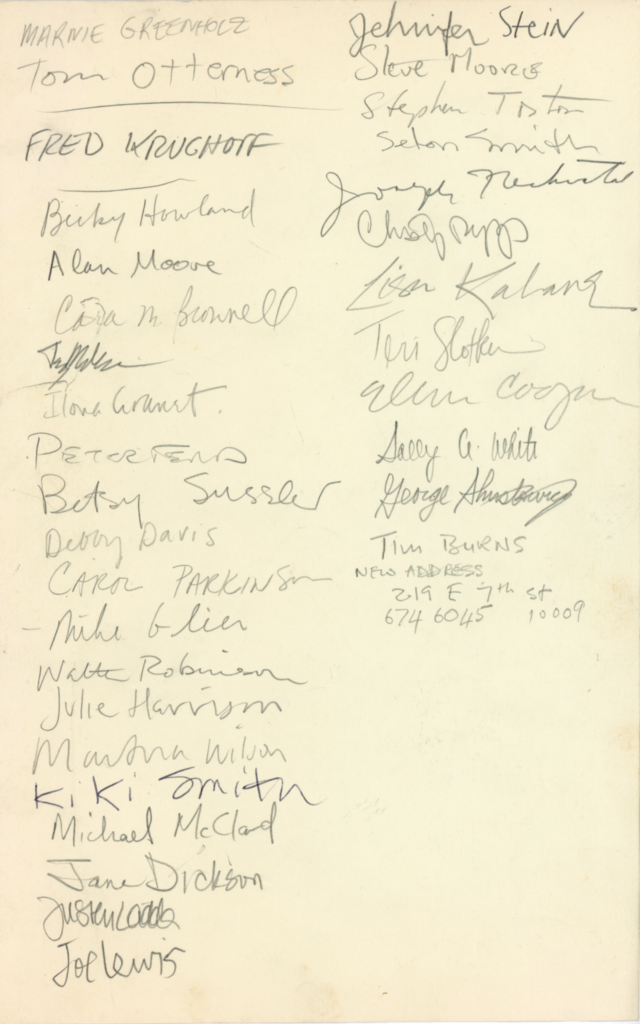 MARNIE GREENHOLZ
Tom Otterness
FRED KRUGHOFF
Becky Howland
Alan Moore
Cara M Brownell
Ilona Granet.
PETER FEND
Betsy Sussler
Debby Davis
CAROL PARKINSON
- Mike Glier
Walter Robinson
Julie Harrison
Martina Wilson
KiKi Smith
Michael McClard
Jane Dickson
Justen Ladda
Joe Lewis
Jehnifer Stein
Steve Moore
Stephen
Seton Smith
Joseph
Christy Rupp
Lisa Kahane
Teri Slotkin
Ellen Cooper
Sally A. White
George
TIM BURNS
NEW ADDRESS
219 E 7th st
674 6045 10009